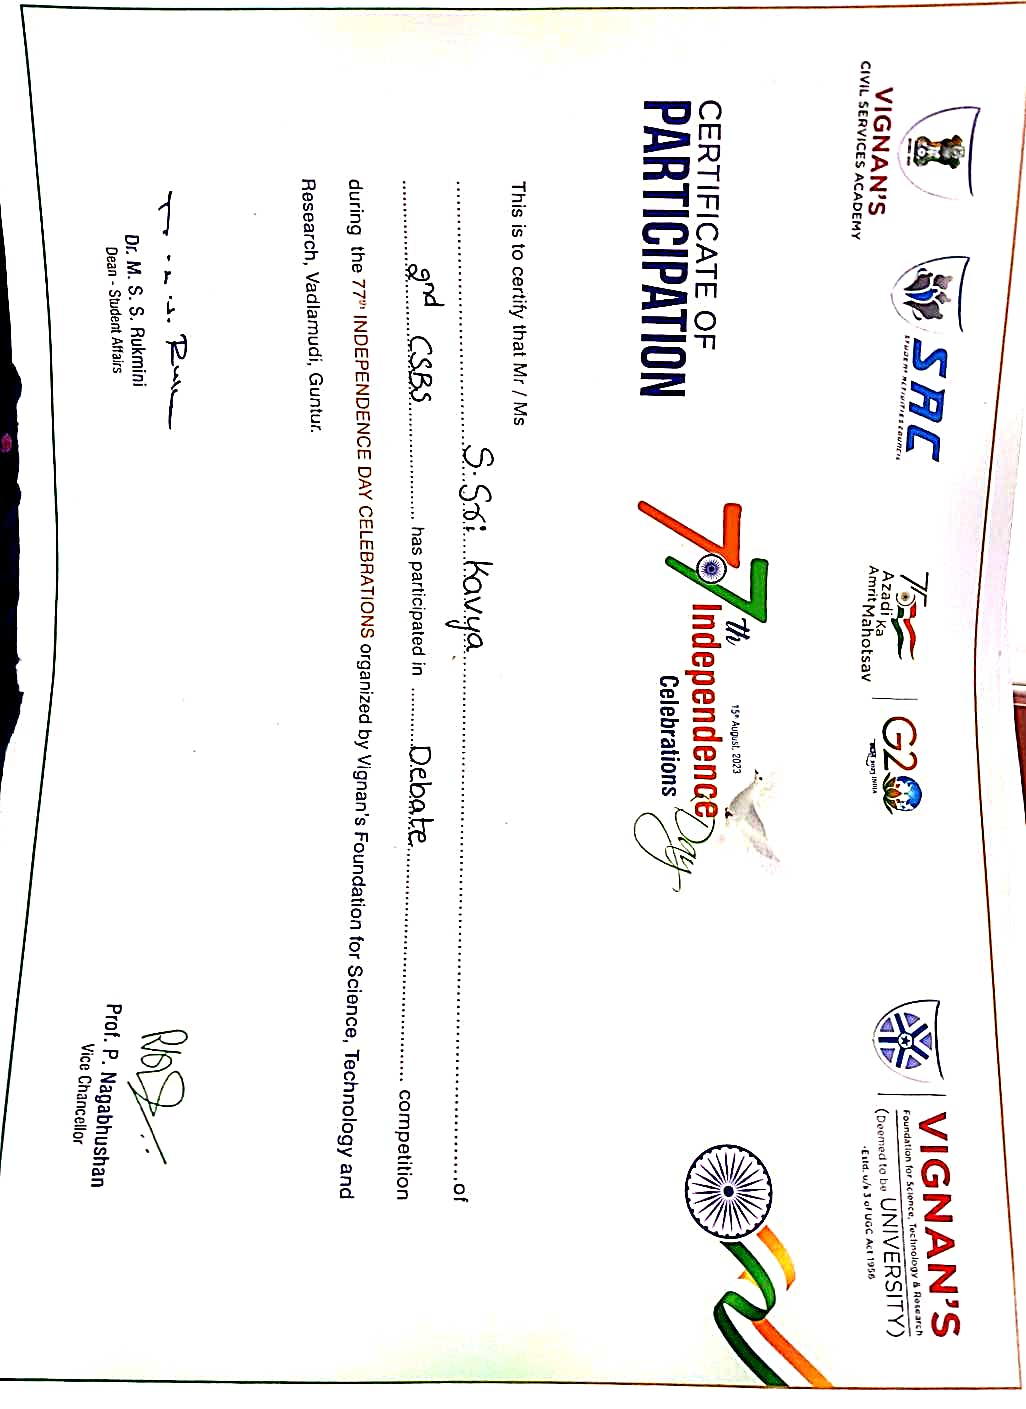 VIGNAN'S
CIVIL SERVICES ACADEMY
SAC
STUDENT ACTIVITIES COUNCIL
75
Azadi Ka
Amrit Mahotsav
G20
VIGNAN'S
Foundation for Science, Technology & Research
(Deemed to be UNIVERSITY)
-Estd. u/s 3 of UGC Act 1956
CERTIFICATE OF
PARTICIPATION
77th
15th August, 2023
Independence
Day
Celebrations
This is to certify that Mr / Ms
S. Sri Kavya of
2nd CSBS has participated in Debate competition
during the 77th INDEPENDENCE DAY CELEBRATIONS organized by Vignan's Foundation for Science, Technology and
Research, Vadlamudi, Guntur.
Dr. M. S. S. Rukmini
Dean - Student Affairs
Prof. P. Nagabhushan
Vice Chancellor